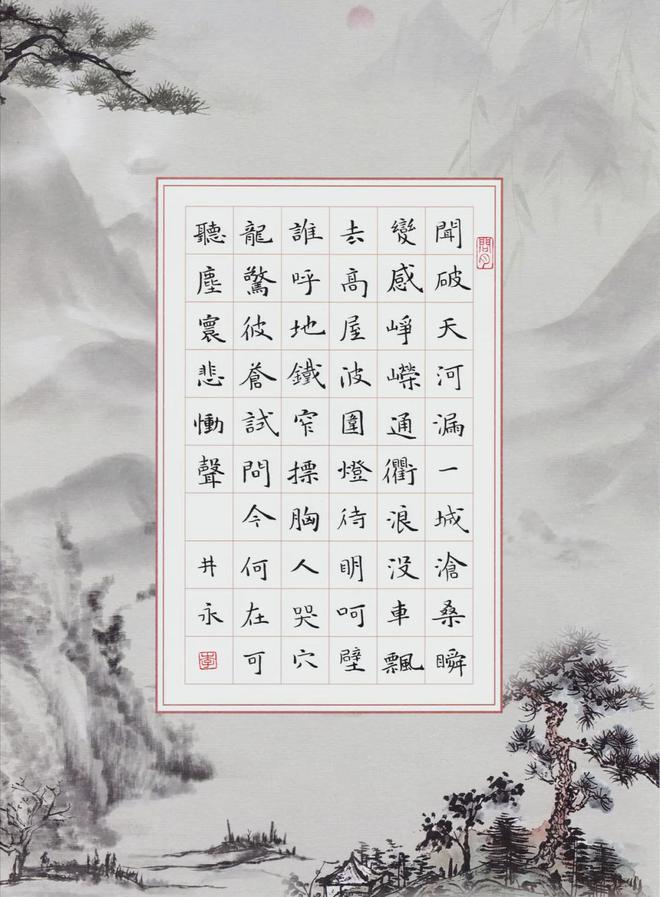 聞破天河漏一城滄桑瞬
變感崢嶸通衢浪没車飄
去高屋波圍燈待明呵壁
誰呼地鐵窄摽胸人哭穴
龍驚彼蒼試問今何在可
聽塵寰悲慟聲
井永